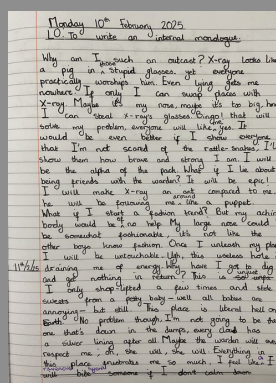 Monday 10th February 2025
L.O. To write an internal monologue.
Why am I such an outcast? X-ray looks like
a pig in those stupid glasses, yet everyone
practically worships him. Even lying gets me
nowhere! If only I can swap places with
X-ray. Maybe it's my nose, maybe it's too big, hm
I can steal X-ray's glasses. Bingo! that will
solve my problem, everyone will like me, yes. It
would be even better if I show everyone
that I'm not scared of the rattle-snakes. I'll
show them how brave and strong I am. I will
be the alpha of the pack. What if I lie about
being friends with the warden? It will be epic!
I will make X-ray an ant compared to me,
he will be following me around like a puppet.
What if I start a fashion trend? But my
body would be of no help. My large ears could
be somewhat fashionable, it's not like the
other boys know fashion. Once I unleash my
I will be untouchable. Ugh, this weeless hole
draining me of energy. Why have I got to dig
and get nothing in return? This is
I only shop-lifted a few times and stole
sweets from a baby - well all babies are
annoying - but still. This place is literal hell on
Earth. No problem though, I'm not going to be the
one that's down in the dumps, every cloud has
a silver lining after all. Maybe the warden will
respect me oh, she will, she will. Everything in
this place frustrates me so much, I feel like I
will bite someone if I don't calm down